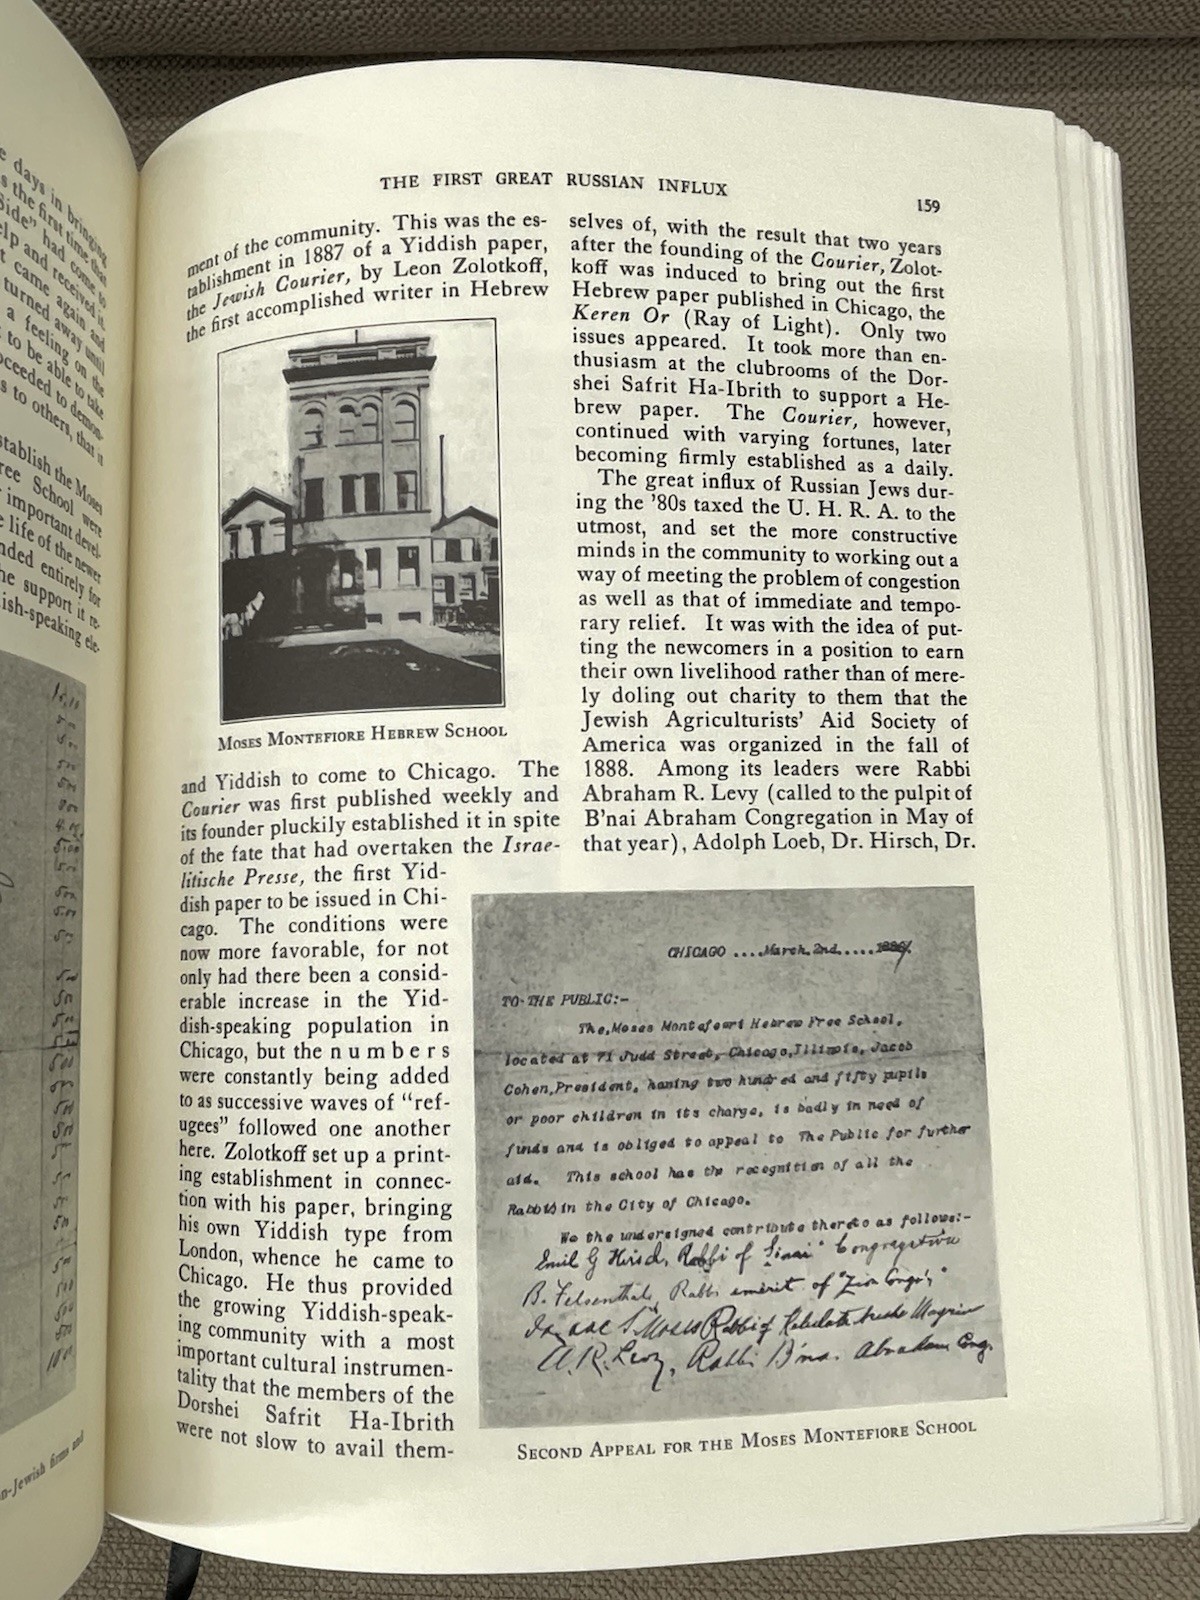 days in bringing
the first time that
Side" had come to
and received it.
came again and
turned away until
a feeling on the
to be able to take
to demon-
to others, that it
the Moses
School were
important devel-
life of the newer
entirely for
support it re-
ele-
firms and
THE FIRST GREAT RUSSIAN INFLUX
159
ment of the community. This was the es-
tablishment in 1887 of a Yiddish paper,
the Jewish Courier, by Leon Zolotkoff,
the first accomplished writer in Hebrew
MOSES MONTEFIORE HEBREW SCHOOL
and Yiddish to come to Chicago. The
Courier was first published weekly and
its founder pluckily established it in spite
of the fate that had overtaken the Israe-
litische Presse, the first Yid-
dish paper to be issued in Chi-
cago. The conditions were
now more favorable, for not
only had there been a consid-
erable increase in the Yid-
dish-speaking population in
Chicago, but the numbers
were constantly being added
to as successive waves of "ref-
ugees" followed one another
here. Zolotkoff set up a print-
ing establishment in connec-
tion with his paper, bringing
his own Yiddish type from
London, whence he came to
Chicago. He thus provided
the growing Yiddish-speak-
ing community with a most
important cultural instrumen-
tality that the members of the
Dorshei Safrit Ha-Ibrith
were not slow to avail them-
selves of, with the result that two years
after the founding of the Courier, Zolot-
koff was induced to bring out the first
Hebrew paper published in Chicago, the
Keren Or (Ray of Light). Only two
issues appeared. It took more than en-
thusiasm at the clubrooms of the Dor-
shei Safrit Ha-Ibrith to support a He-
brew paper. The Courier, however,
continued with varying fortunes, later
becoming firmly established as a daily.
The great influx of Russian Jews dur-
ing the '80s taxed the U. H. R. A. to the
utmost, and set the more constructive
minds in the community to working out a
way of meeting the problem of congestion
as well as that of immediate and tempo-
rary relief. It was with the idea of put-
ting the newcomers in a position to earn
their own livelihood rather than of mere-
ly doling out charity to them that the
Jewish Agriculturists' Aid Society of
America was organized in the fall of
1888. Among its leaders were Rabbi
Abraham R. Levy (called to the pulpit of
B'nai Abraham Congregation in May of
that year), Adolph Loeb, Dr. Hirsch, Dr.
CHICAGO ....March.2nd.....
TO THE PUBLIC:-
The,Moses Montefeuri Hebrew Free School,
located at 71 Judd Street, Chicago,Illinois, Jacob
Cohen,President, having two hundred and fifty pupils
or poor children in its charge, is badly in need of
funds and is obliged to appeal to The Public for further
aid. This school has the recognition of all the
Rabbis in the City of Chicago.
We the undersigned contribute thereto as follows:-
Emil G Hirsch, Rabbi of Sinai Congregation
B. Felsenthal, Rabbi emerit. of "Zion Cong'n"
Isaac S Moses Rabbi of
A. R. Levy, Rabbi B'na. Abraham Cong.
SECOND APPEAL FOR THE MOSES MONTEFIORE SCHOOL